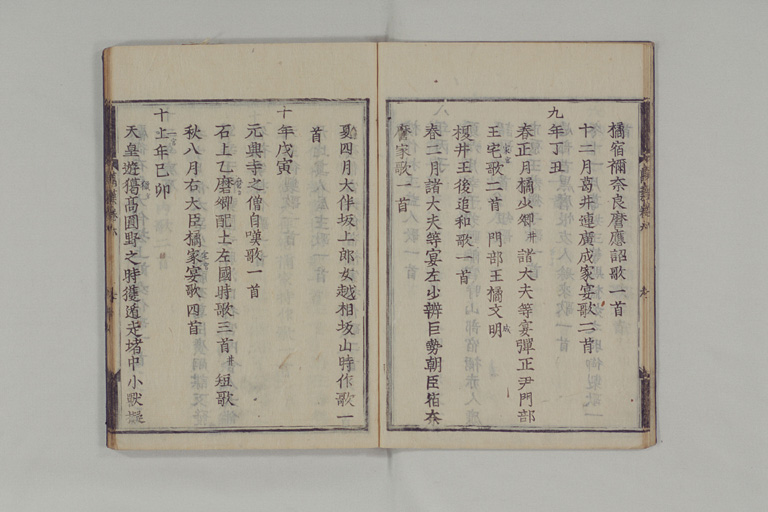 橘宿禰奈良麿應詔歌一首
十二月葛井連廣成家宴歌二首
九年丁丑
春正月橘少卿并諸大夫等宴彈正尹門部
王宅歌二首 門部王橘文明
榎井王後追和歌一首
春二月諸大夫等宴左少辨巨勢朝臣宿奈
麿家歌一首
夏四月大伴坂上郎女越相坂山時作歌一
首
十年戊寅
元興寺之僧自嘆歌一首
石上乙麿卿配土左國時歌三首并短歌
秋八月右大臣橘家宴歌四首
十一年己卯
天皇遊獦高圓野之時獲遁走堵中小獸